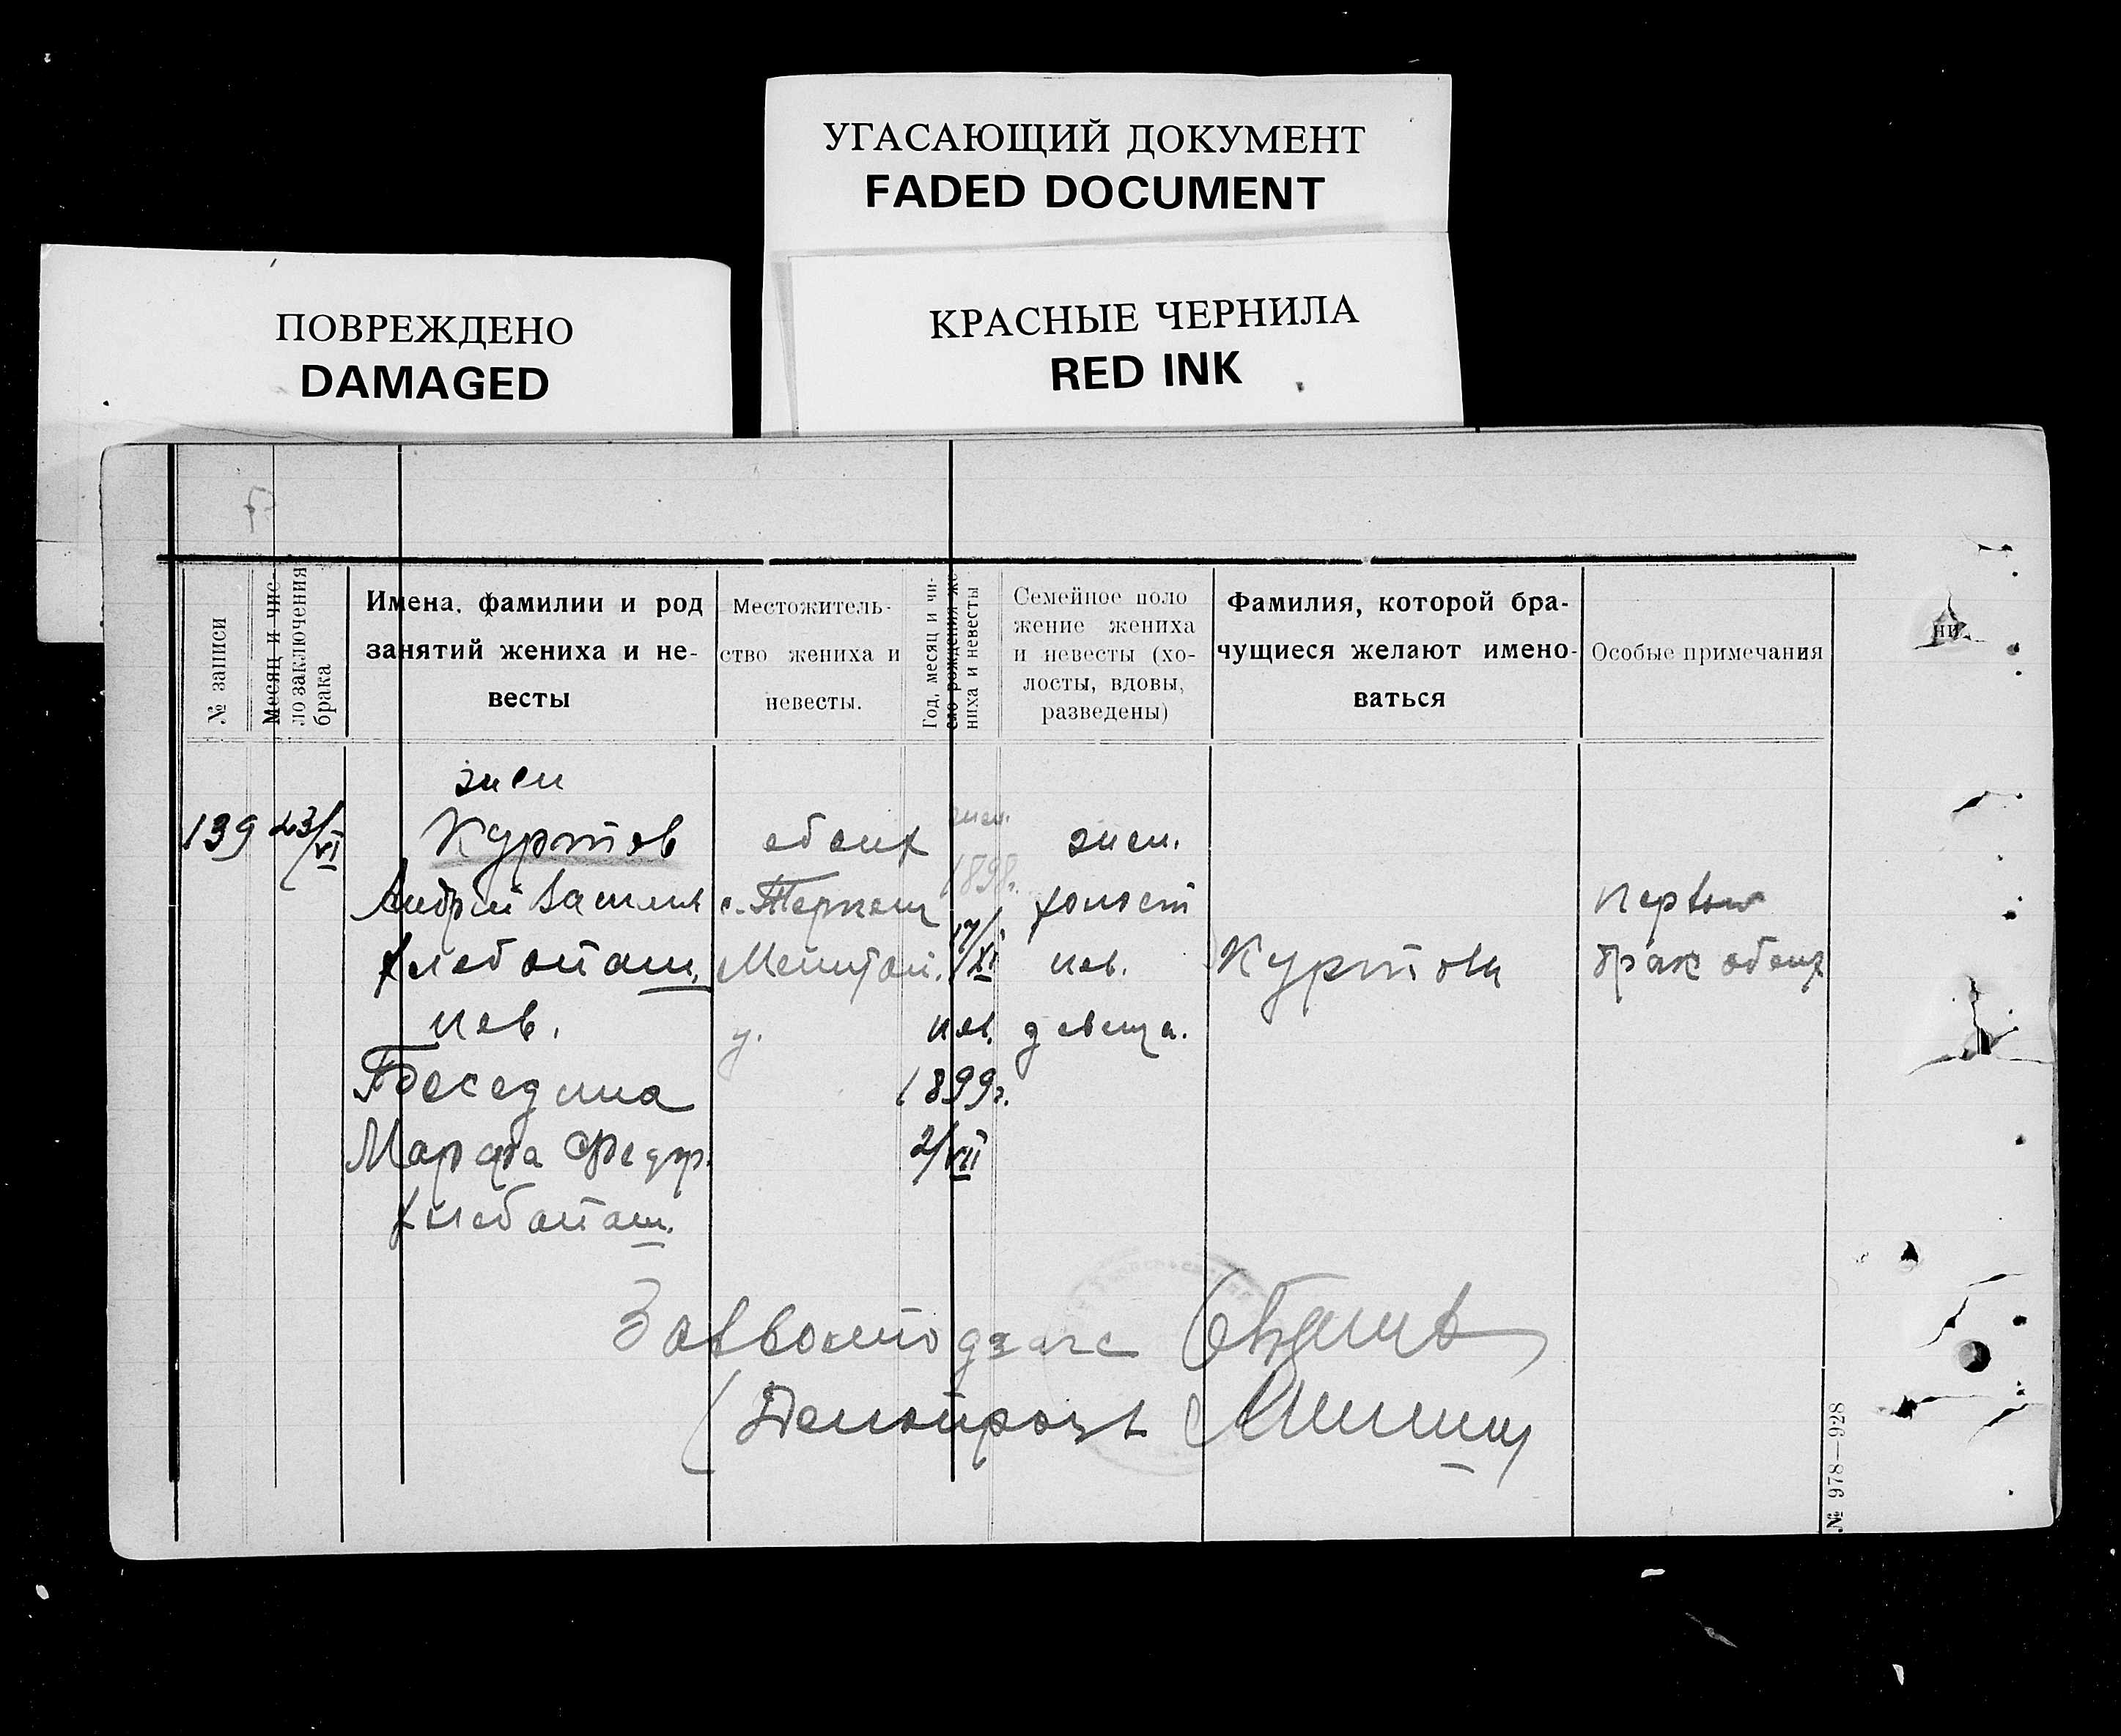 УГАСАЮЩИЙ ДОКУМЕНТ
FADED DOCUMENT
КРАСНЫЕ ЧЕРНИЛА
RED INK
ПОВРЕЖДЕНО
DAMAGED
№ записи
Месяц и чис-
ло заключения
брака
Имена, фамилии и род
занятий жениха и не-
весты
Местожитель-
ство жениха и
невесты.
Год, месяц и чи-
сло рождения же-
ниха и невесты
Семейное поло
жение жениха
и невесты (хо-
лосты, вдовы,
разведены)
Фамилия, которой бра-
чущиеся желают имено-
ваться
Особые примечания
ни
139
23/VI
жен
Куртов
Андрей
хлебопаш.
нев.
Беседина
Марфа Федор.
хлебопаш.
обоих
у.
жен.
1898г.
17/XI
нев.
1899г.
2/VII
жен.
холост
нев.
девица.
Куртовы
первый
брак обоих
Делопроиз
№ 978—928